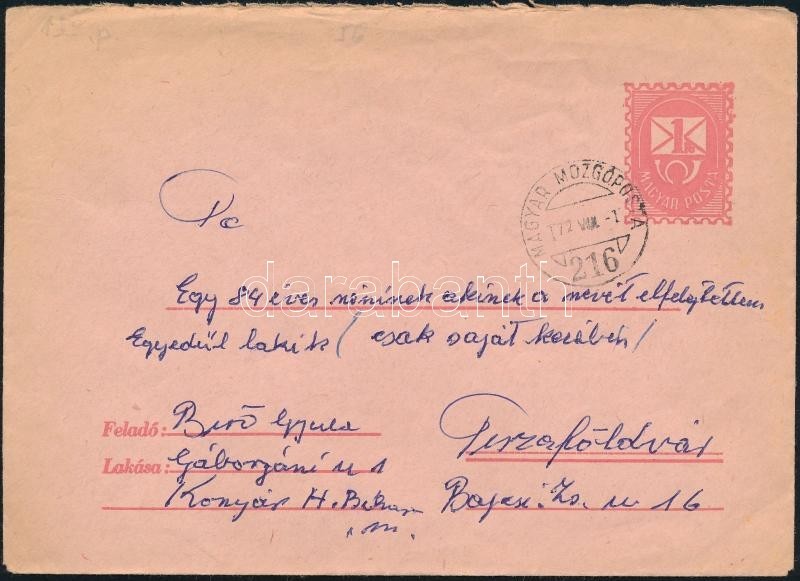 1 Ft
MAGYAR POSTA
MAGYAR MOZGÓPOSTA
216
Egy 84 éves néninek akinek a nevét elfelejtettem
Egyedül lakik / csak saját kezében /
Feladó: Biró Gyula
Lakása: Gáborjáni u 1
Konyár H. Bihar m.
Tiszaföldvár
Bajcsi. Zs. u 16
darabanth